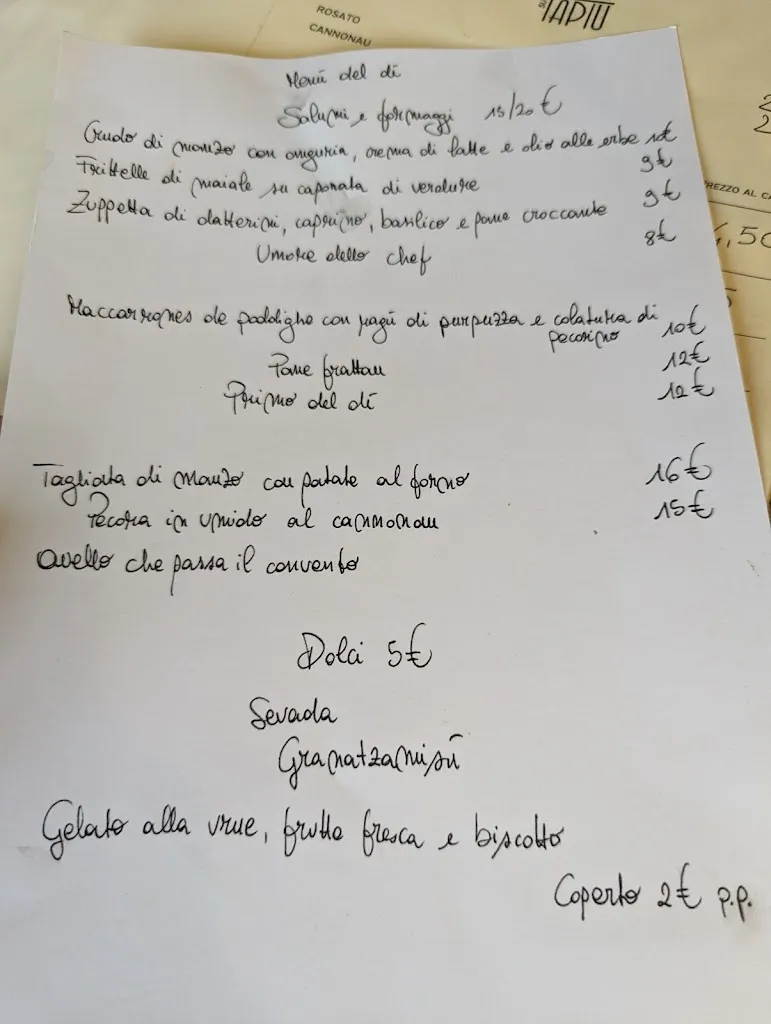 ROSATO
CANNONAU
SU TAPIU
Menù del dì
Salumi e formaggi 15/20 €
Crudo di manzo con anguria, crema di latte e olio alle erbe 10€
Frittelle di maiale su caponata di verdure 9€
Zuppetta di datterini, caprino, basilico e pane croccante 9€
Umore dello chef 8€
Maccarrones de poddighe con ragù di purpuzza e colatura di pecorino 10€
Pane frattau 12€
Primo del dì 12€
Tagliata di manzo con patate al forno 16€
Pecora in umido al cannonau 15€
Quello che passa il convento
Dolci 5€
Sevada
Granatzamisù
Gelato alla vrue, frutta fresca e biscotto
Coperto 2€ p.p.
REZZO AL CA
,50
5